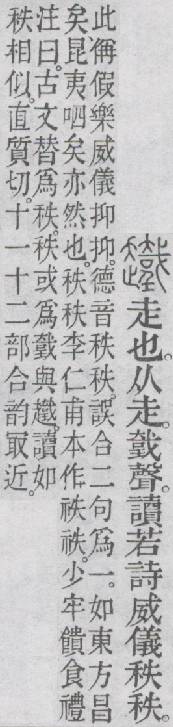 走也。从走。𢧜聲。讀若詩威儀秩秩。
此偁假樂威儀抑抑。德音秩秩。誤合二句爲一。如東方昌
矣。昆夷呬矣亦然也。秩秩李仁甫本作祑祑。少牢饋食禮
注曰。古文替爲秩。秩或爲𢧜與。讀如
秩相似。直質切。十一十二部合韵冣近。